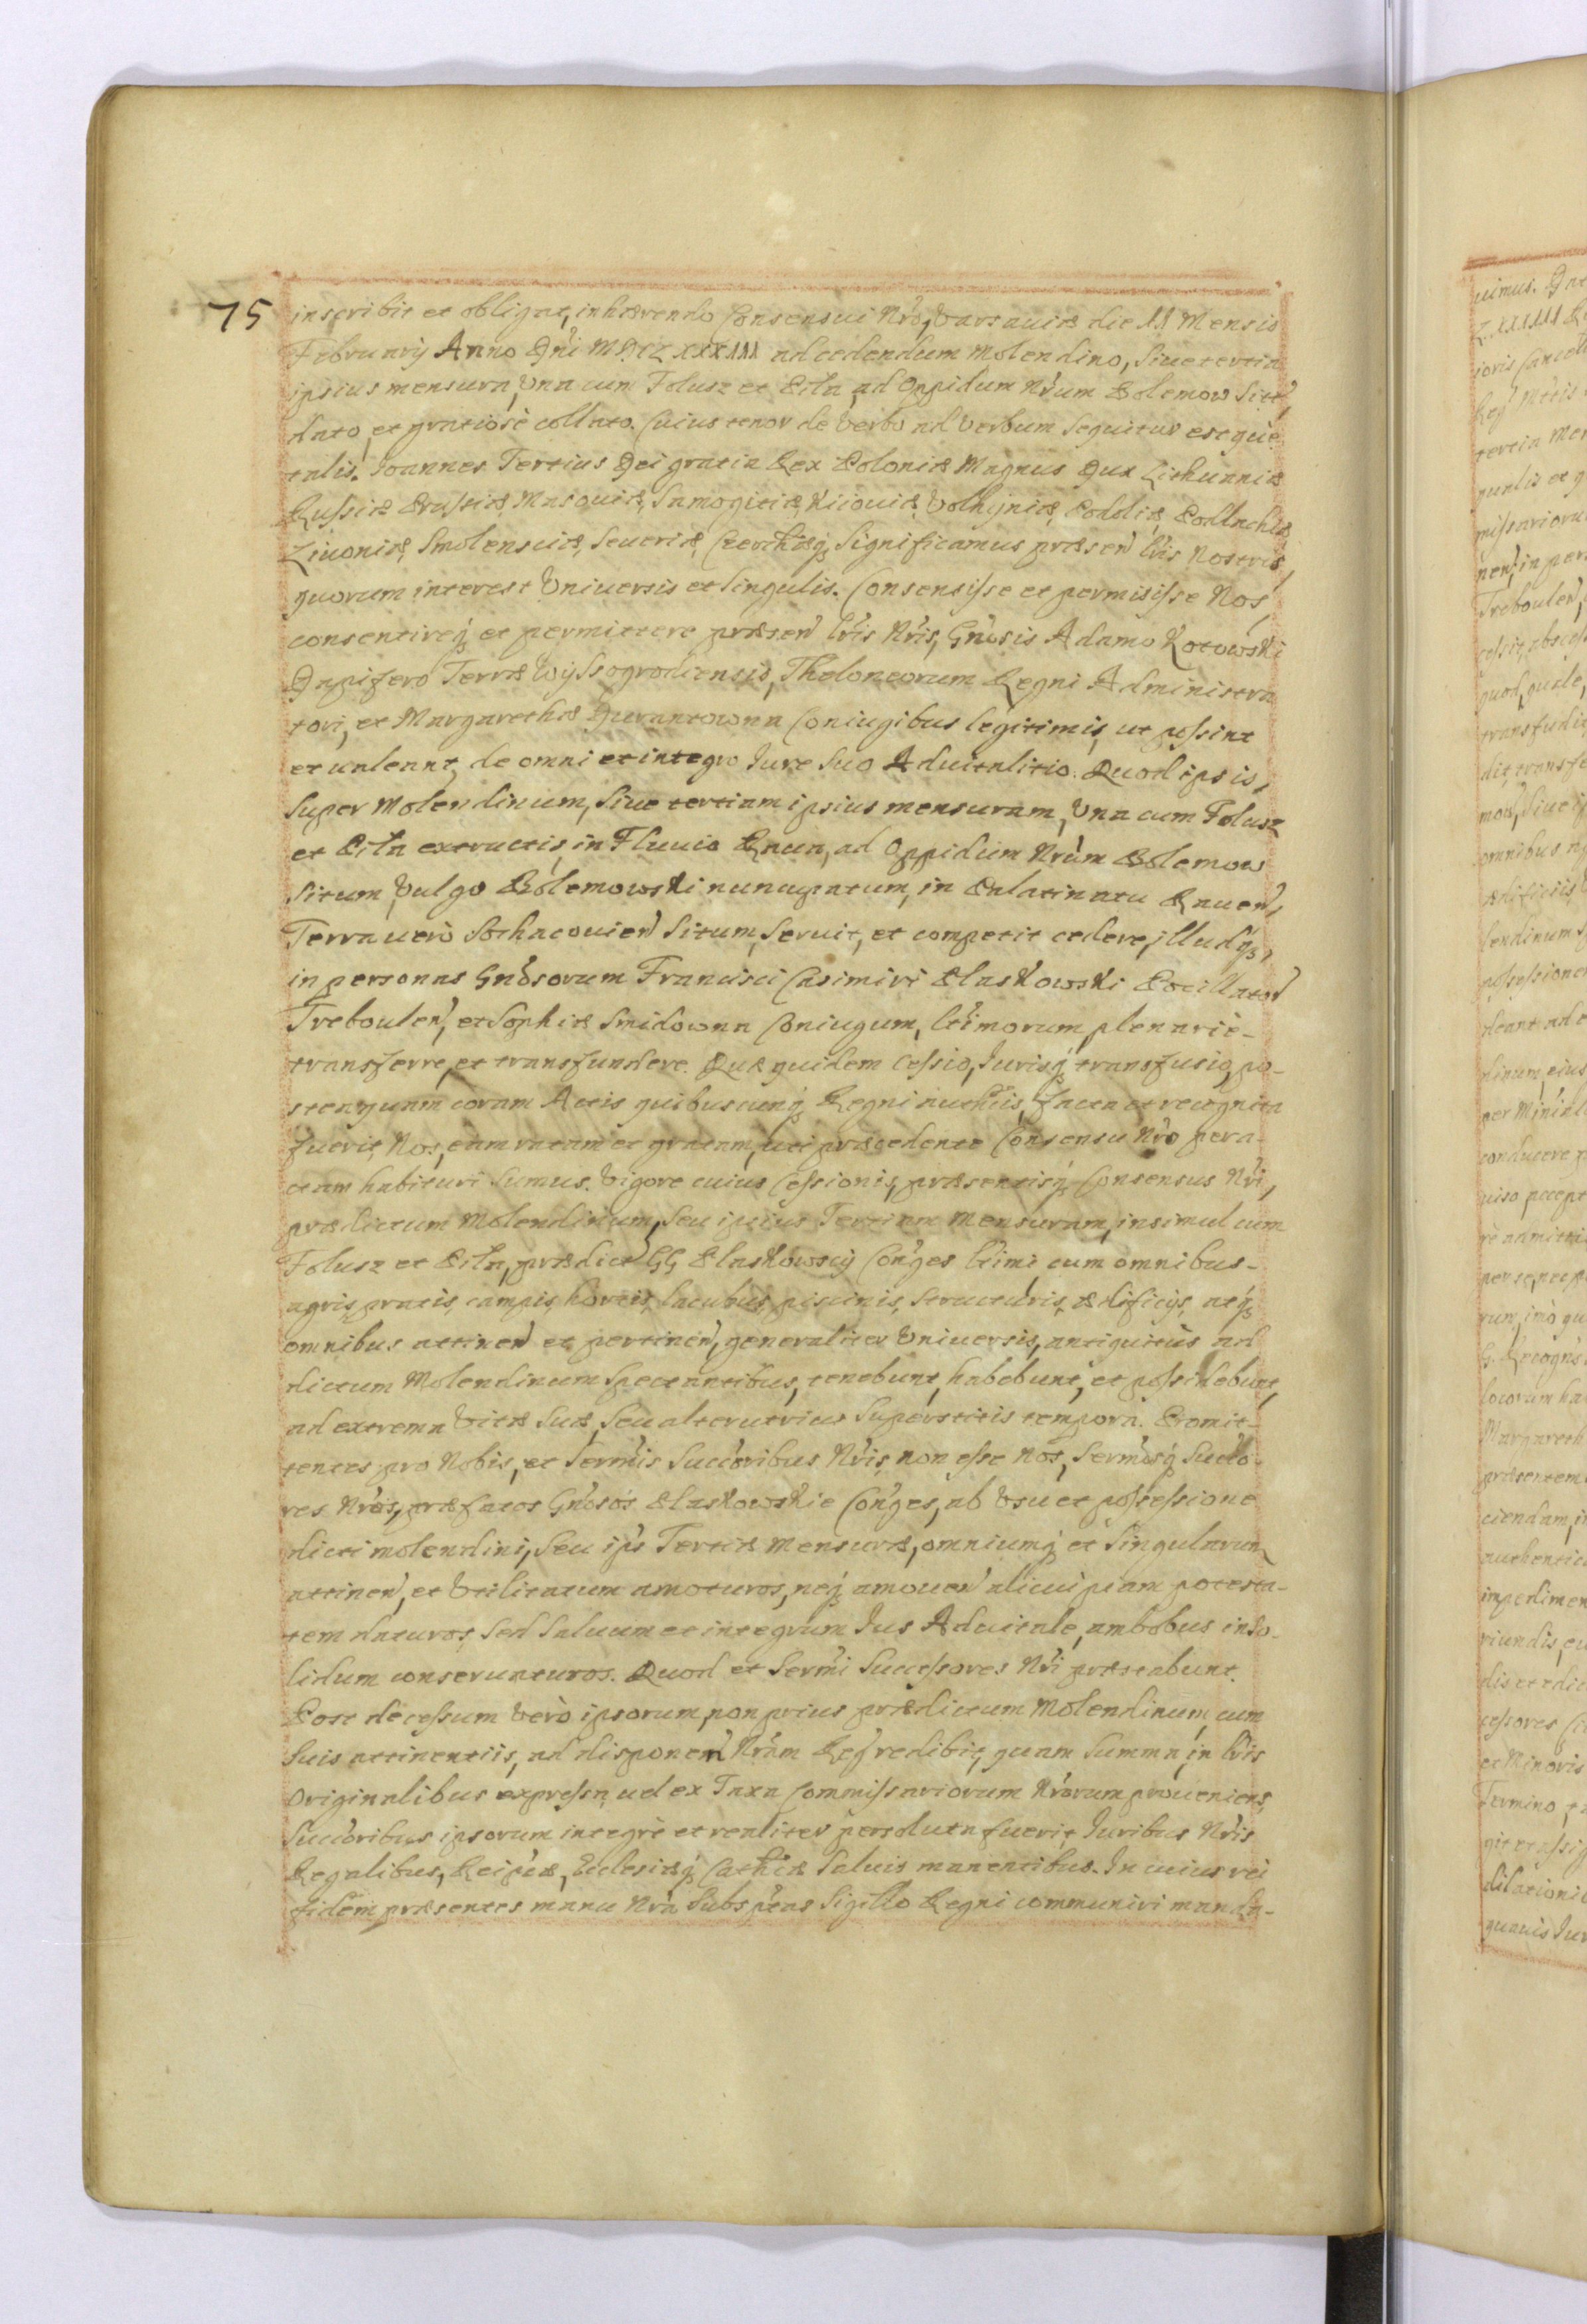 75
inscribit et obligat, inhærendo Consensui Nr̃o, Varsauiæ die 11 Mensis
Februarij Anno Dn̄i MDCLXXXIII ad cedendum Molendino, siue tertia
ipsius mensura, Vna cum Folusz et Piła, ad Oppidum Nr̃um Bolemow sitt,
dato, et gratiosè collato. Cuius tenor de Verbo ad Verbum sequitur estque
talis. Joannes Tertius Dei gratia Rex Poloniæ Magnus Dux Lithuaniæ
Russiæ Prussiæ, Masouiæ, Samogitiæ, Kiiouiæ, Volhyniæ, Podoliæ, Podlachiæ
Liuoniæ, Smolensciæ, Seueriæ, Czerchiæq; Significamus præsen̄ lr̃is Nostris,
quorum interest Vniuersis et singulis. Consensisse et permisisse Nos,
consentireq; et permittere præsen̄ lr̃is Nr̃is, Gn̄osis Adamo Kotowski
Dapifero Terræ Wyssogrodiensis, Theloneorum Regni Administra
tori, et Margarethæ Durantowna Coniugibus legitimis, ut possint
et ualeant, de omni et integro Jure suo Aduitalitio. Quod ipsis,
super Molendinum, siue tertiam ipsius mensuram, Vna cum Folusz
et Piła extructis, in Fluuio Raua, ad Oppidum Nr̃um Bolemow
situm, Vulgo Bolemowski nuncupatum, in Palatinatu Rauen̄,
Terra uerò Sochacouien̄ situm, seruit, et competit cedere, illudq;,
in personas Gn̄osorum Francisci Casimiri Płaskowski Pocillator̄
Treboulen̄, et Sophiæ Smidowna Coniugum, lt̃imorum, plenariè-
transferre, et transfundere. Quæ quidem Cessio, Jurisq; transfusio, po-
steaquam coram Actis quibuscunq; Regni authēīs, facta et recognita
fuerit, Nos, eam ratam et gratam, uti præcedente Consensu Nr̃o pera-
ctam habituri sumus. Vigore cuius Cessionis, præsentisq; Consensus Nr̃i,
prædictum Molendinum, seu ipsius Tertiam Mensuram, insimul cum
Folusz et Piła, prædict̄ GG Płaskowscÿ Con̄ges lt̃imi, cum omnibus-
agris, pratis, campis, hortis, lacubus, piscinis, structuris, ædificÿs, atq;
omnibus attinen̄ et pertinen̄, generaliter Vniuersis, antiquitùs ad
dictum Molendinum spectantibus, tenebunt, habebunt, et possidebunt,
ad extrema Vitæ suæ, seu alterutrius superstitis tempora. Promit-
tentes pro Nobis, et Serm̄is Succ̄oribus Nr̃is, non esse Nos, Serm̄osq; Succ̄o-
res Nr̃os, præfatos Gn̄osos Płaskowskie Con̄ges, ab Vsu et possessione
dicti molendini, seu ips̄ Tertiæ Mensuræ, omniumq; et singularum
attinen̄, et Vtilitatum amoturos, neq; amouen̄ alicui piam potesta-
tem daturos, sed saluum et integrum Jus Aduitale, ambobus inso-
lidum conseruaturos. Quod et Serm̄i Successores Nr̃i præstabunt.
Post decessum Verò ipsorum, non prius prædictum Molendinum, cum
suis attinentiis, ad disponen̄ Nr̃am Reg̃ redibit, quam summa, in lr̃is
Originalibus expressa, uel ex Taxa Commissariorum Nr̃orum proueniens,
Succ̄oribus ipsorum integrè et realiter persoluta fuerit, Juribus Nr̃is
Regalibus, Reip̄cæ, Ecclesiæq; Cath̄cæ saluis manentibus. In cuius rei
fidem præsentes manu Nr̃a subsp̄tas Sigillo Regni communiri manda-